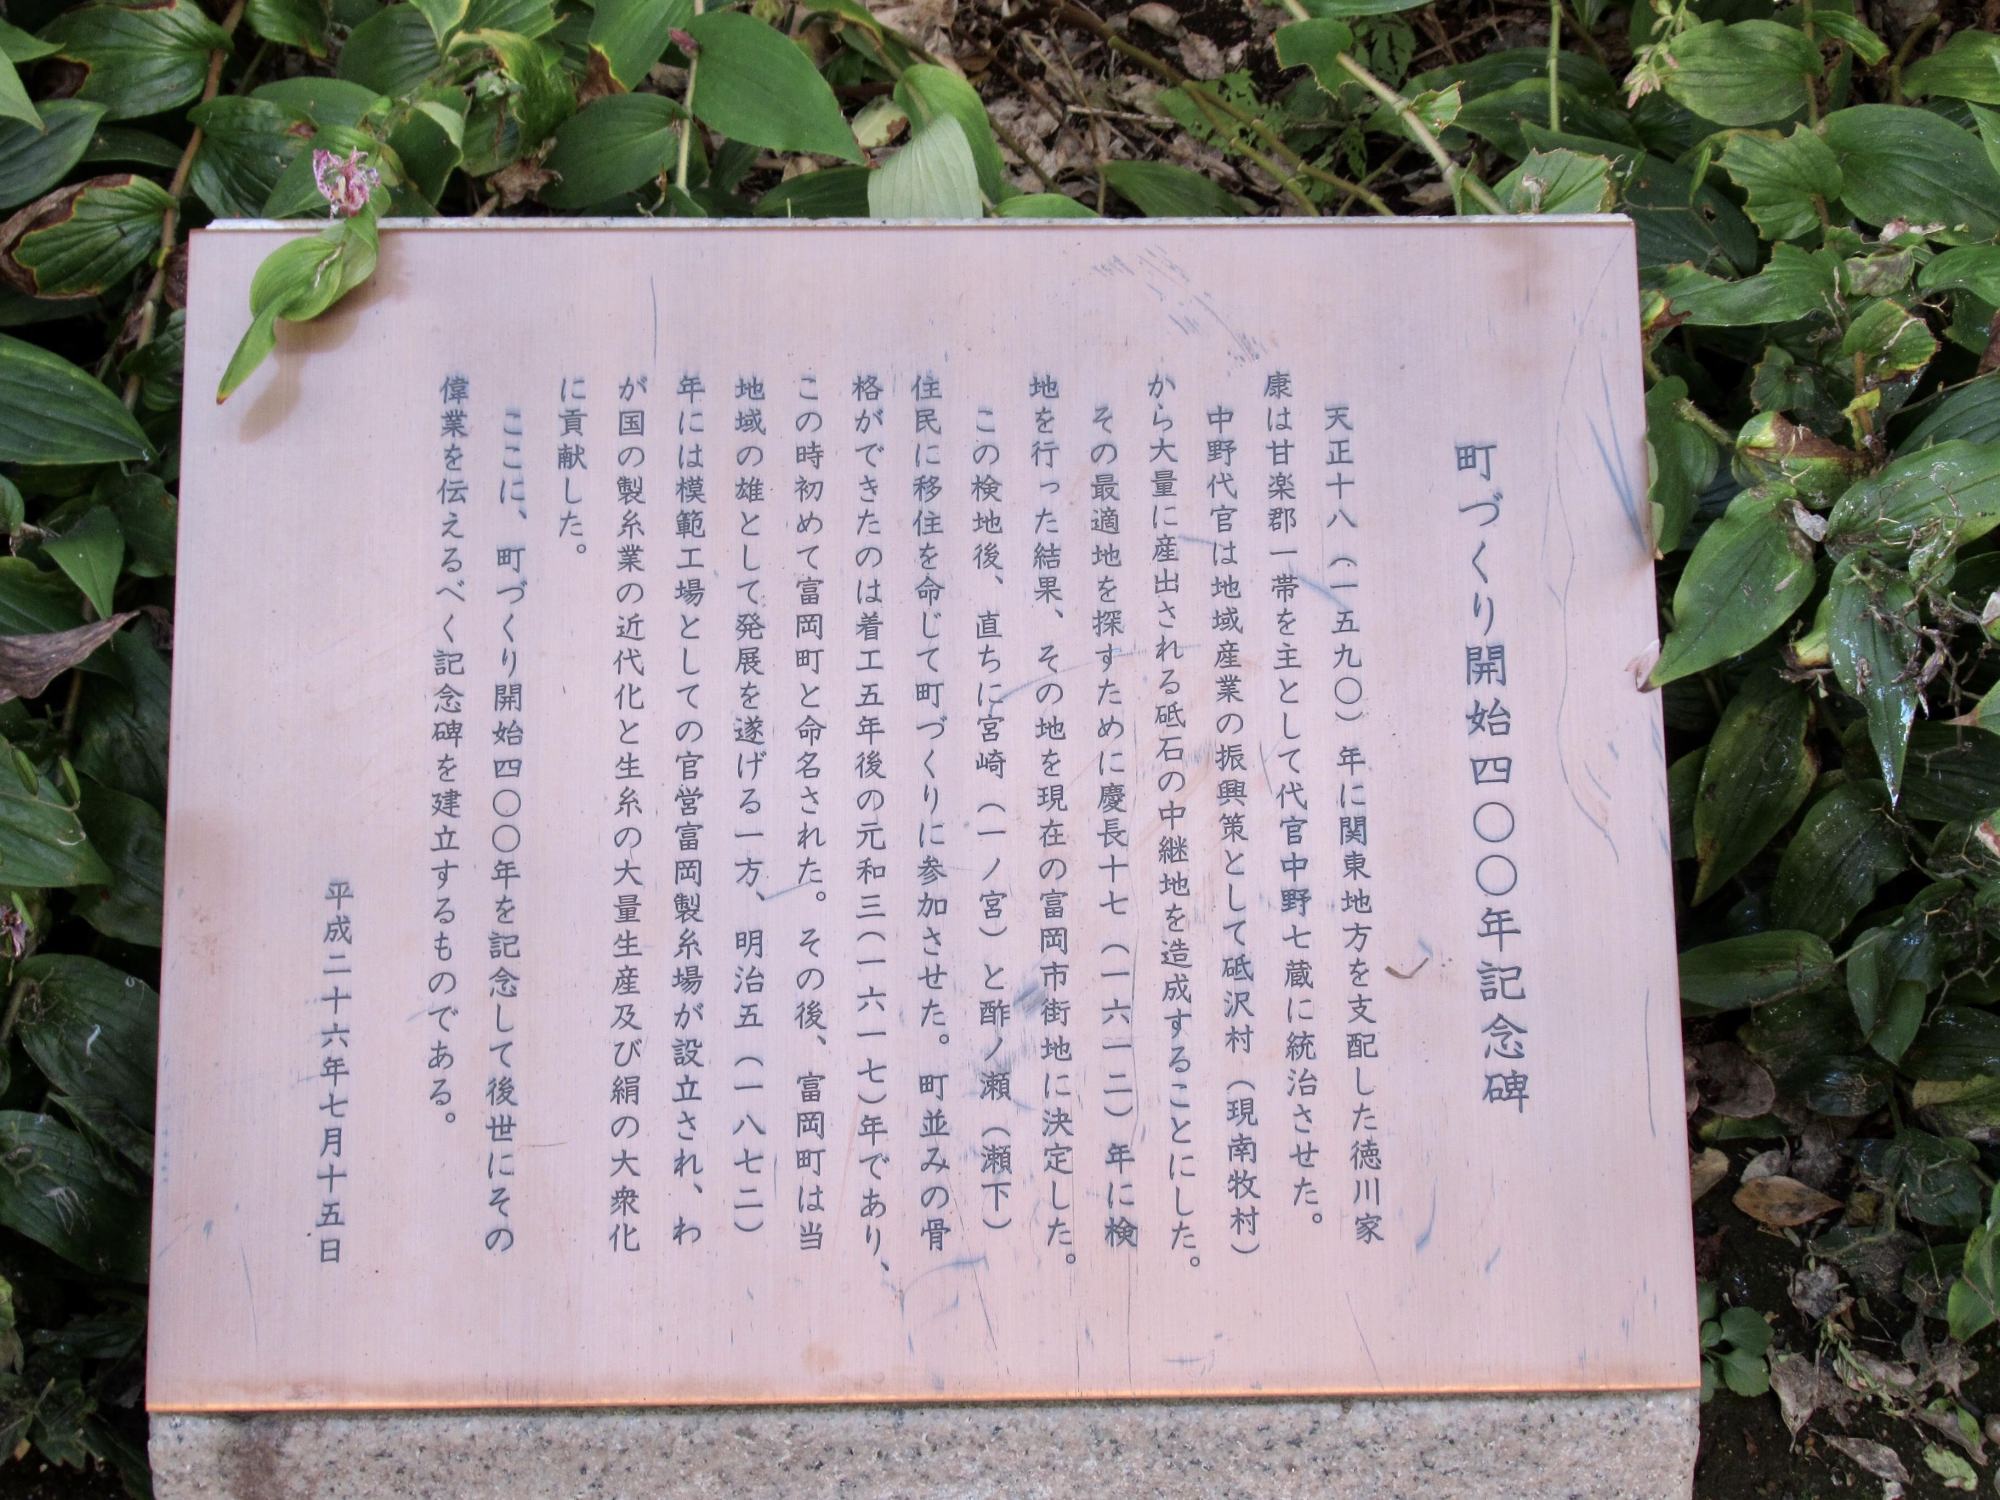 町づくり開始四〇〇年記念碑
天正十八（一五九〇）年に関東地方を支配した徳川家
康は甘楽郡一帯を主として代官中野七蔵に統治させた。
中野代官は地域産業の振興策として砥沢村（現南牧村）
から大量に産出される砥石の中継地を造成することにした。
その最適地を探すために慶長十七（一六一二）年に検
地を行った結果、その地を現在の富岡市街地に決定した。
この検地後、直ちに宮崎（一ノ宮）と酢ノ瀬（瀬下）
住民に移住を命じて町づくりに参加させた。町並みの骨
格ができたのは着工五年後の元和三（一六一七）年であり、
この時初めて富岡町と命名された。その後、富岡町は当
地域の雄として発展を遂げる一方、明治五（一八七二）
年には模範工場としての官営富岡製糸場が設立され、わ
が国の製糸業の近代化と生糸の大量生産及び絹の大衆化
に貢献した。
ここに、町づくり開始四〇〇年を記念して後世にその
偉業を伝えるべく記念碑を建立するものである。
平成二十六年七月十五日